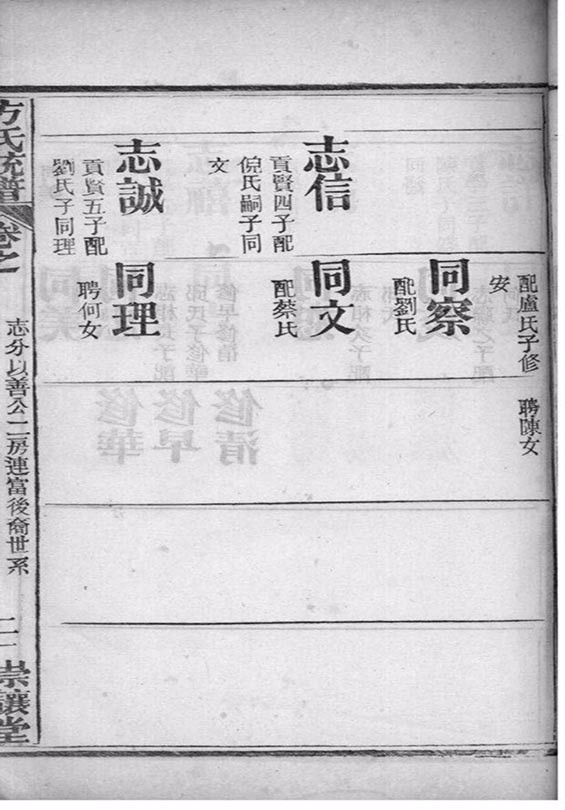 配盧氏子修
安
聘陳女
同察
配劉氏
志信
貢賢四子配
倪氏嗣子同
文
同文
配蔡氏
志誠
貢賢五子配
劉氏子同理
同理
聘何女
方氏統譜
卷之
志分以善公二房連富後裔世系
崇讓堂